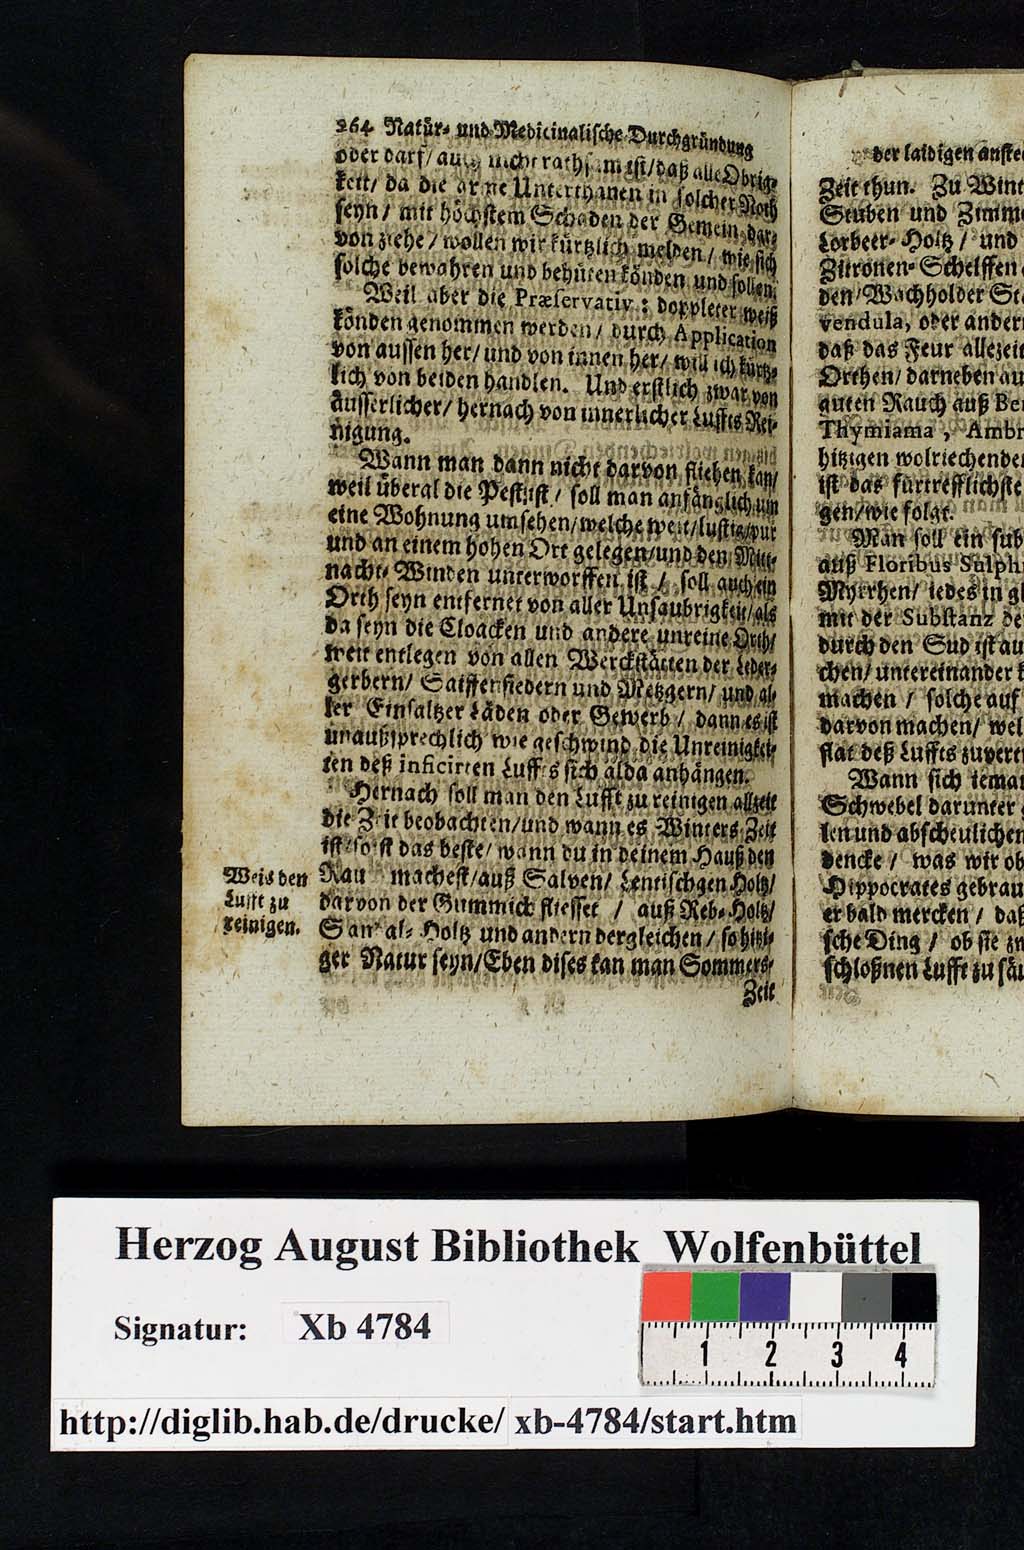 264 Natür- und Medicinalische Durchgründung
oder darf/ auch nicht rathsam ist/ daß alle Obrig-
keit/ da die arme Unterthanen in solcher Noth
seyn/ mit höchstem Schaden der Gemein dar-
von ziehe/ wollen wir kürtzlich melden/ wie sich
solche bewahren und behüten könden und sollen.
Weil aber die Præservativ: doppleter weiß
könden genommen werden/ durch Application
von aussen her/ und von innen her/ will ich kürtz-
lich von beiden handlen. Und erstlich zwar von
äusserlicher/ hernach von innerlicher Luffts Rei-
nigung.
Wann man dann nicht darvon fliehen kan/
weil überal die Pest ist/ soll man anfänglich um
eine Wohnung umsehen/ welche weit/ lustig/ pur
und an einem hohen Ort gelegen/ und den Mitt-
nacht- Winden unterworffen ist/ soll auch ein
Orth seyn entfernet von aller Unsaubrigkeit/ als
da seyn die Cloacken und andere unreine Orth/
weit entlegen von allen Werckstätten der Leder-
gerbern/ Saiffensiedern und Metzgern/ und al-
ler Einsaltzer Läden oder Gewerb/ dann es ist
unaußsprechlich wie geschwind die Unreinigkei-
ten deß inficirten Luffts sich alda anhängen.
Hernach soll man den Lufft zu reinigen allzeit
die Zeit beobachten/ und wann es Winters Zeit
ist/ so ist das beste/ wann du in deinem Hauß den
Weis den
Lufft zu
reinigen.
Rau machest/ auß Salven/ Lentischgen Holtz/
darvon der Gummick fliesset / auß Reb- Holtz/
Santal- Holtz und andern dergleichen/ so hitzi-
ger Natur seyn/ Eben dises kan man Sommers-
Zeit
der laidigen anste
Zeit thun. Zu Wint
Stuben und Zimme
Lorbeer- Holtz/ und
Zitronen- Schelffen
den/ Wachholder Sta
vendula, oder andern
daß das Feur allezeit
Orthen/ darneben au
guten Rauch auß Ben
Thymiama, Ambr
hitzigen wolriechenden
ist das fürtrefflichste
gen/ wie folgt.
Man soll ein sub
auß Floribus Sulph
Myrrhen/ iedes in gl
mit der Substanz de
durch den Sud ist au
chen/ untereinander k
machen / solche auf
darvon machen/ wel
stat deß Luffts zuver
Wann sich ieman
Schwebel darunter
len und abscheulichen
dencke / was wir ob
Hippocrates gebrau
er bald mercken / daß
sche Ding / ob sie zw
schloßnen Lufft zu säu
Herzog August Bibliothek Wolfenbüttel
Signatur: Xb 4784
1 2 3 4
http://diglib.hab.de/drucke/ xb-4784/start.htm